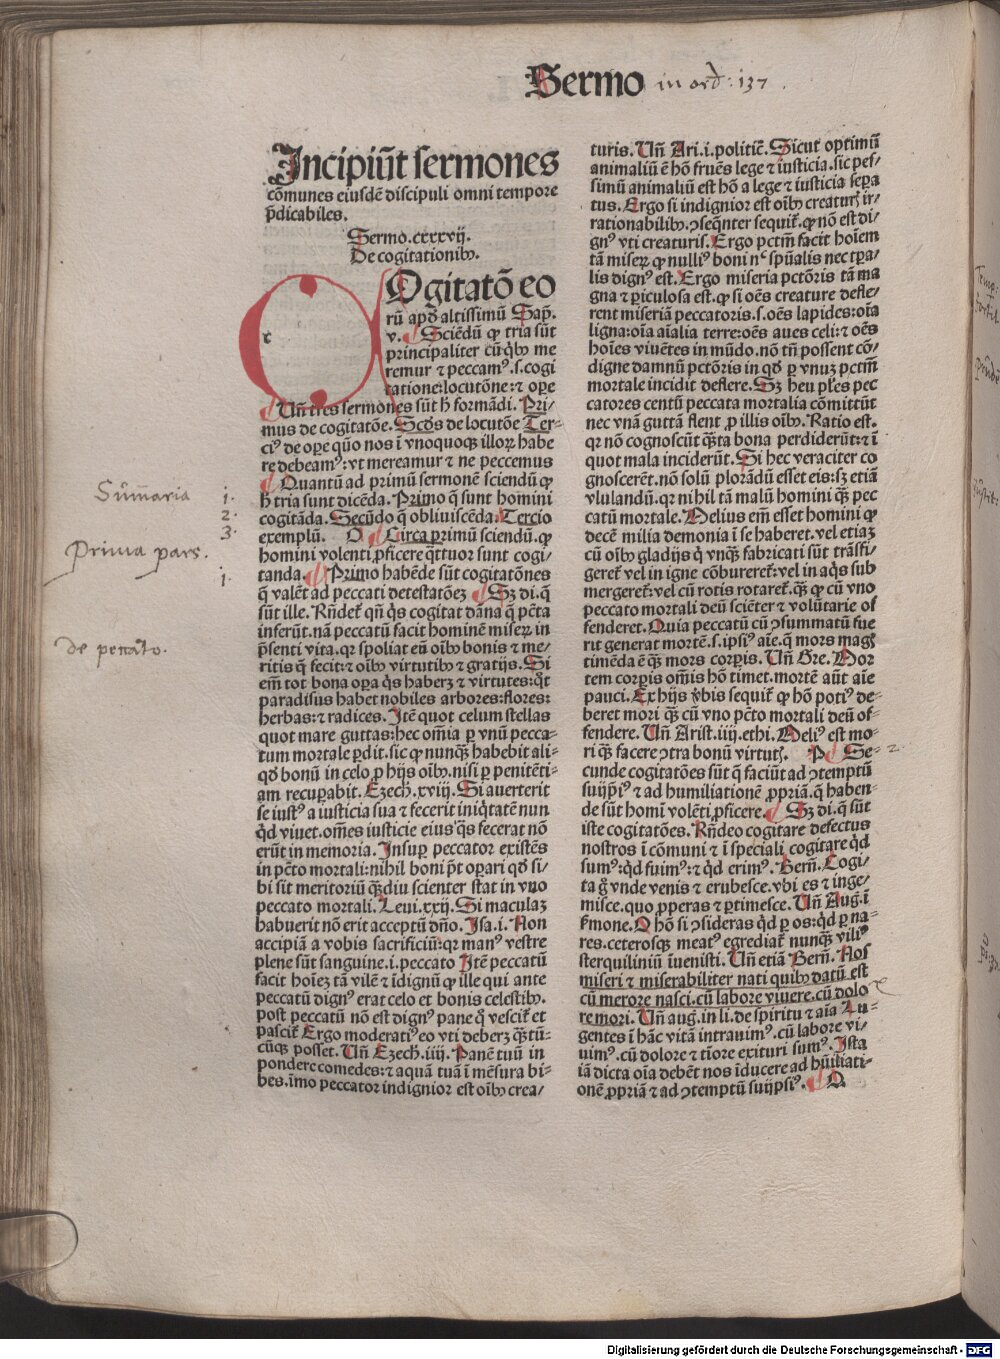 Sermo in ord: 137.
Incipiūt sermones
cōmunes eiusdē discipuli omni tempore
p̄dicabiles.
Sermo.cxxxvij.
De cogitationibꝰ.
COgitatō eo
rū apđ altissimū Sap̄.
v. Sciēdū ꝙ tria sūt
principaliter cū q̇bꝰ me
remur ⁊ peccamꝰ.s.cogi
tatione:locutōne:⁊ oꝑe
Uñ tres sermones sūt ħ formādi. Pri/
mus de cogitatōe. Scđs de locutōe Ter-
ciꝰ de oꝑe quō nos ī vnoquoqꝫ illoꝝ habe
re debeamꝰ:vt mereamur ⁊ ne peccemus
Quantū ad primū sermonē sciendū ꝙ
ħ tria sunt dicēda. Primo q̄ sunt homini
cogitāda. Secūdo q̄ obliuiscēda. Tercio
exemplū. O Circa primū sciendū.ꝙ
homini volenti ꝓficere q̄ttuor sunt cogi/
tanda. Primo habēde sūt cogitatōnes
q̄ valēt ad peccati detestatōeꝫ Sꝫ di.q̄
sūt ille. Rn̄deť qn̄ q̇s cogitat dāna q̄ pctā
inferūt.nā peccatū facit hominē miseꝝ in
p̄senti vita.qꝛ spoliat eū oībꝰ bonis ⁊ me/
ritis q̄ fecit:⁊ oībꝰ virtutibꝰ ⁊ gratijs. Si
em̄ tot bona oꝑa q̇s haberꝫ ⁊ virtutes:q̊t
paradisus habet nobiles arbores:flores:
herbas:⁊ radices. Itē quot celum stellas
quot mare guttas:hec om̄ia ꝑ vnū pecca-
tum mortale ꝑdit.sic ꝙ nunꝗ̄ habebit ali-
qđ bonū in celo ꝓ hijs oībꝰ.nisi ꝑ penitēti-
am recuꝑabit. Ezech.xviij. Si auerterit
se iustꝰ a iusticia sua ⁊ fecerit iniq̇tatē nun
q̇d viuet.om̄es iusticie eius q̄s fecerat nō
erūt in memoria. Insuꝑ peccator existēs
in pctō mortali:nihil boni pōt oꝑari qđ si-
bi sit meritoriū ꝗ̄diu scienter stat in vno
peccato mortali. Leui.xxij. Si maculaꝫ
habuerit nō erit acceptū dn̄o. Isa.i. Non
accipiā a vobis sacrificiū:qꝛ manꝰ vestre
plene sūt sanguine.i.peccato Itē peccatū
facit hoīeꝫ tā vilē ⁊ īdignū ꝙ ille qui ante
peccatū dignꝰ erat celo et bonis celestibꝰ.
post peccatū nō est dignꝰ pane q̊ vesciť et
pasciť Ergo moderatiꝰ eo vti deberꝫ ꝗ̄tū-
cūqꝫ posset. Uñ Ezech.iiij. Panē tuū in
pondere comedes:⁊ aquā tuā ī mēsura bi-
bes.īmo peccator indignior est oībꝰ crea/
turis. Uñ Ari.i.politic̄. Sicut optimū
animaliū ē hō fruēs lege ⁊ iusticia.sic pes/
simū animaliū est hō a lege ⁊ iusticia seꝑa
tus. Ergo si indignior est oībꝰ creaturꝭ ir-
rationabilibꝰ.ꝯseq̄nter sequiť.ꝙ nō est di-
gnꝰ vti creaturis. Ergo pctm̄ facit hoīem
tā miseꝝ ꝙ nulliꝰ boni nc̄ spūalis nec tꝑa-
lis dignꝰ est. Ergo miseria pctōris tā ma
gna ⁊ ꝑiculosa est.ꝙ si oēs creature defle-
rent miseriā peccatoris.s.oēs lapides:oīa
ligna:oīa aīalia terre:oēs aues celi:⁊ oēs
hoīes viuētes in mūdo.nō tn̄ possent cō/
digne damnū pctōris in qđ ꝑ vnuꝫ pctm̄
mortale incidit deflere. Sꝫ heu pl̄es pec
catores centū peccata mortalia cōmittūt
nec vnā guttā flent ꝓ illis oībꝰ. Ratio est.
qꝛ nō cognoscūt ꝗ̄ta bona perdiderūt:⁊ ī
quot mala inciderūt. Si hec veraciter co
gnoscerēt.nō solū plorādū esset eis:sꝫ etiā
vlulandū.qꝛ nihil tā malū homini ꝗ̄ pec
catū mortale. Melius em̄ esset homini ꝙ
decē milia demonia ī se haberet.vel etiaꝫ
cū oībꝰ gladijs q̄ vnꝗ̄ fabricati sūt trāsfi-
gereť vel in igne cōbureret:vel in aq̇s sub
mergereť:vel cū rotis rotareť.ꝗ̄ ꝙ cū vno
peccato mortali deū sciēter ⁊ volūtarie of
fenderet. Quia peccatū cū ꝯsummatū fue
rit generat mortē.s.ipsiꝰ aīe.q̄ mors magꝭ
timēda ē ꝗ̄ mors corꝑis. Uñ Gre. Mor
tem corꝑis om̄is hō timet.mortē aūt aīe
pauci. Ex hijs v̄bis sequiť ꝙ hō potiꝰ de-
beret mori ꝗ̄ cū vno pctō mortali deū of-
fendere. Uñ Arist.iiij.ethi. Meliꝰ est mo-
ri ꝗ̄ facere ꝯtra bonū virtutꝭ. P Se- 2
cunde cogitatōes sūt q̄ faciūt ad ꝯtemptū
suijp̄iꝰ ⁊ ad humiliationē ꝓpriā.q̄ haben-
de sūt homī volēti ꝓficere. Sꝫ di.q̄ sūt
iste cogitatōes. Rn̄deo cogitare defectus
nostros ī cōmuni ⁊ ī speciali cogitare q̇d
sumꝰ:q̇d fuimꝰ:⁊ q̇d erimꝰ. Bern̄. Cogi/
ta g̊ vnde venis ⁊ erubesce.vbi es ⁊ inge/
misce.quo ꝓperas ⁊ ꝑtimesce. Uñ Aug.ī
ẜmone. O hō si ꝯsideras q̇d ꝑ os:q̇d ꝑ na-
res.ceterosqꝫ meatꝰ egrediať nunꝗ̄ viliꝰ
sterquiliniū īuenisti. Uñ etiā Bern̄. Nos
miseri ⁊ miserabiliter nati quibꝰ datū est
cū merore nasci.cū labore viuere.cū dolo
re mori. Uñ auḡ.in li.de spiritu ⁊ aīa Lu-
gentes ī hāc vitā intrauimꝰ.cū labore vi/
uimꝰ.cū dolore ⁊ tīore exituri sumꝰ. Ista
iā dicta oīa debēt nos īducere ad hūiliati-
onē ꝓpriā ⁊ ad ꝯtemptū suijpsiꝰ. Q
Sum̄aria 1.
2.
3.
Prima pars.
1.
de peccāto.
Digitalisierung gefördert durch die Deutsche Forschungsgemeinschaft - DFG